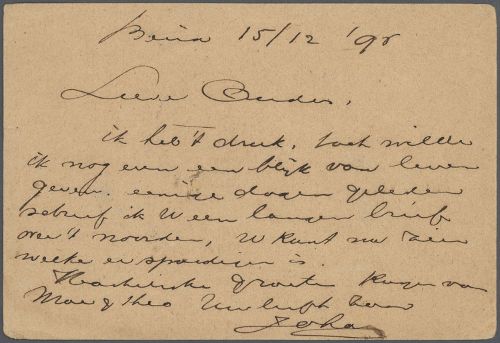 Beira 15/12 '98
Lieve Ouders,
ik heb 't druk, toch wilde
ik nog even een blijk van leven
geven. eenige dagen geleden
schreef ik U een langen brief
over 't noorden, U kunt nu zien
welke er spoediger is.
Hartelijke groeten kusjes van
Moe & Theo Uw liefh. zoon
Joha